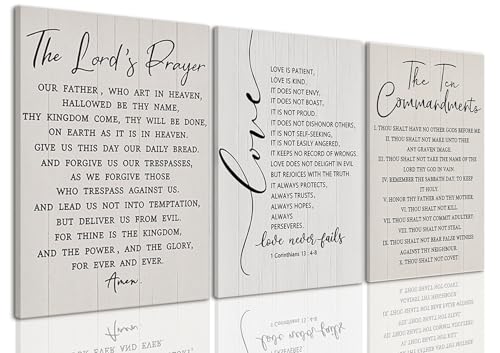 The Lord's Prayer
OUR FATHER, WHO ART IN HEAVEN,
HALLOWED BE THY NAME,
THY KINGDOM COME, THY WILL BE DONE,
ON EARTH AS IT IS IN HEAVEN.
GIVE US THIS DAY OUR DAILY BREAD.
AND FORGIVE US OUR TRESPASSES,
AS WE FORGIVE THOSE
WHO TRESPASS AGAINST US.
AND LEAD US NOT INTO TEMPTATION,
BUT DELIVER US FROM EVIL.
FOR THINE IS THE KINGDOM,
AND THE POWER, AND THE GLORY,
FOR EVER AND EVER.
Amen.
love
LOVE IS PATIENT,
LOVE IS KIND.
IT DOES NOT ENVY,
IT DOES NOT BOAST,
IT IS NOT PROUD.
IT DOES NOT DISHONOR OTHERS,
IT IS NOT SELF-SEEKING,
IT IS NOT EASILY ANGERED,
IT KEEPS NO RECORD OF WRONGS.
LOVE DOES NOT DELIGHT IN EVIL
BUT REJOICES WITH THE TRUTH.
IT ALWAYS PROTECTS,
ALWAYS TRUSTS,
ALWAYS HOPES,
ALWAYS
PERSEVERES.
love never fails
1 Corinthians 13 : 4-8
The Ten
Commandments
I. THOU SHALT HAVE NO OTHER GODS BEFORE ME
II. THOU SHALT NOT MAKE UNTO THEE
ANY GRAVEN IMAGE.
III. THOU SHALT NOT TAKE THE NAME OF THE
LORD THY GOD IN VAIN.
IV. REMEMBER THE SABBATH DAY, TO KEEP
IT HOLY.
V. HONOR THY FATHER AND THY MOTHER.
VI. THOU SHALT NOT KILL.
VII. THOU SHALT NOT COMMIT ADULTERY.
VIII. THOU SHALT NOT STEAL.
IX. THOU SHALT NOT BEAR FALSE WITNESS
AGAINST THY NEIGHBOUR.
X. THOU SHALT NOT COVET.